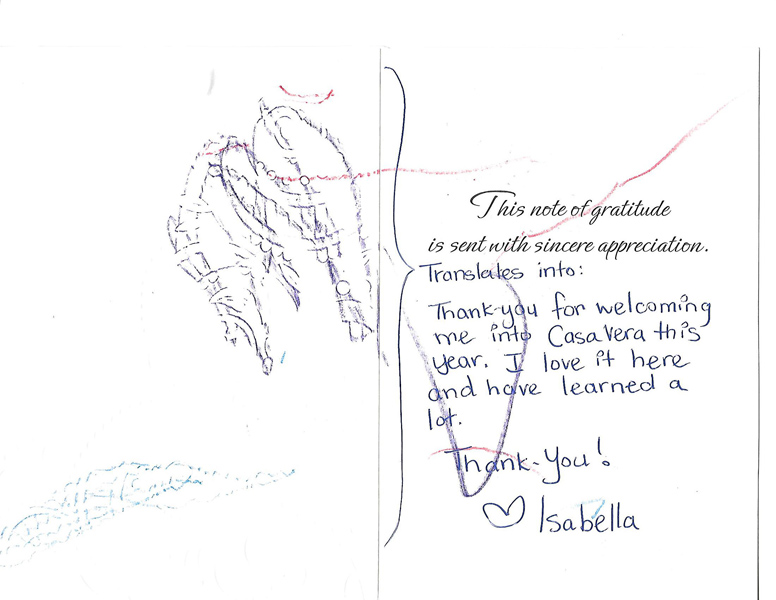 This note of gratitude
is sent with sincere appreciation.
Translates into:
Thank-you for welcoming
me into Casa Vera this
year. I love it here
and have learned a
lot.
Thank-You!
Isabella